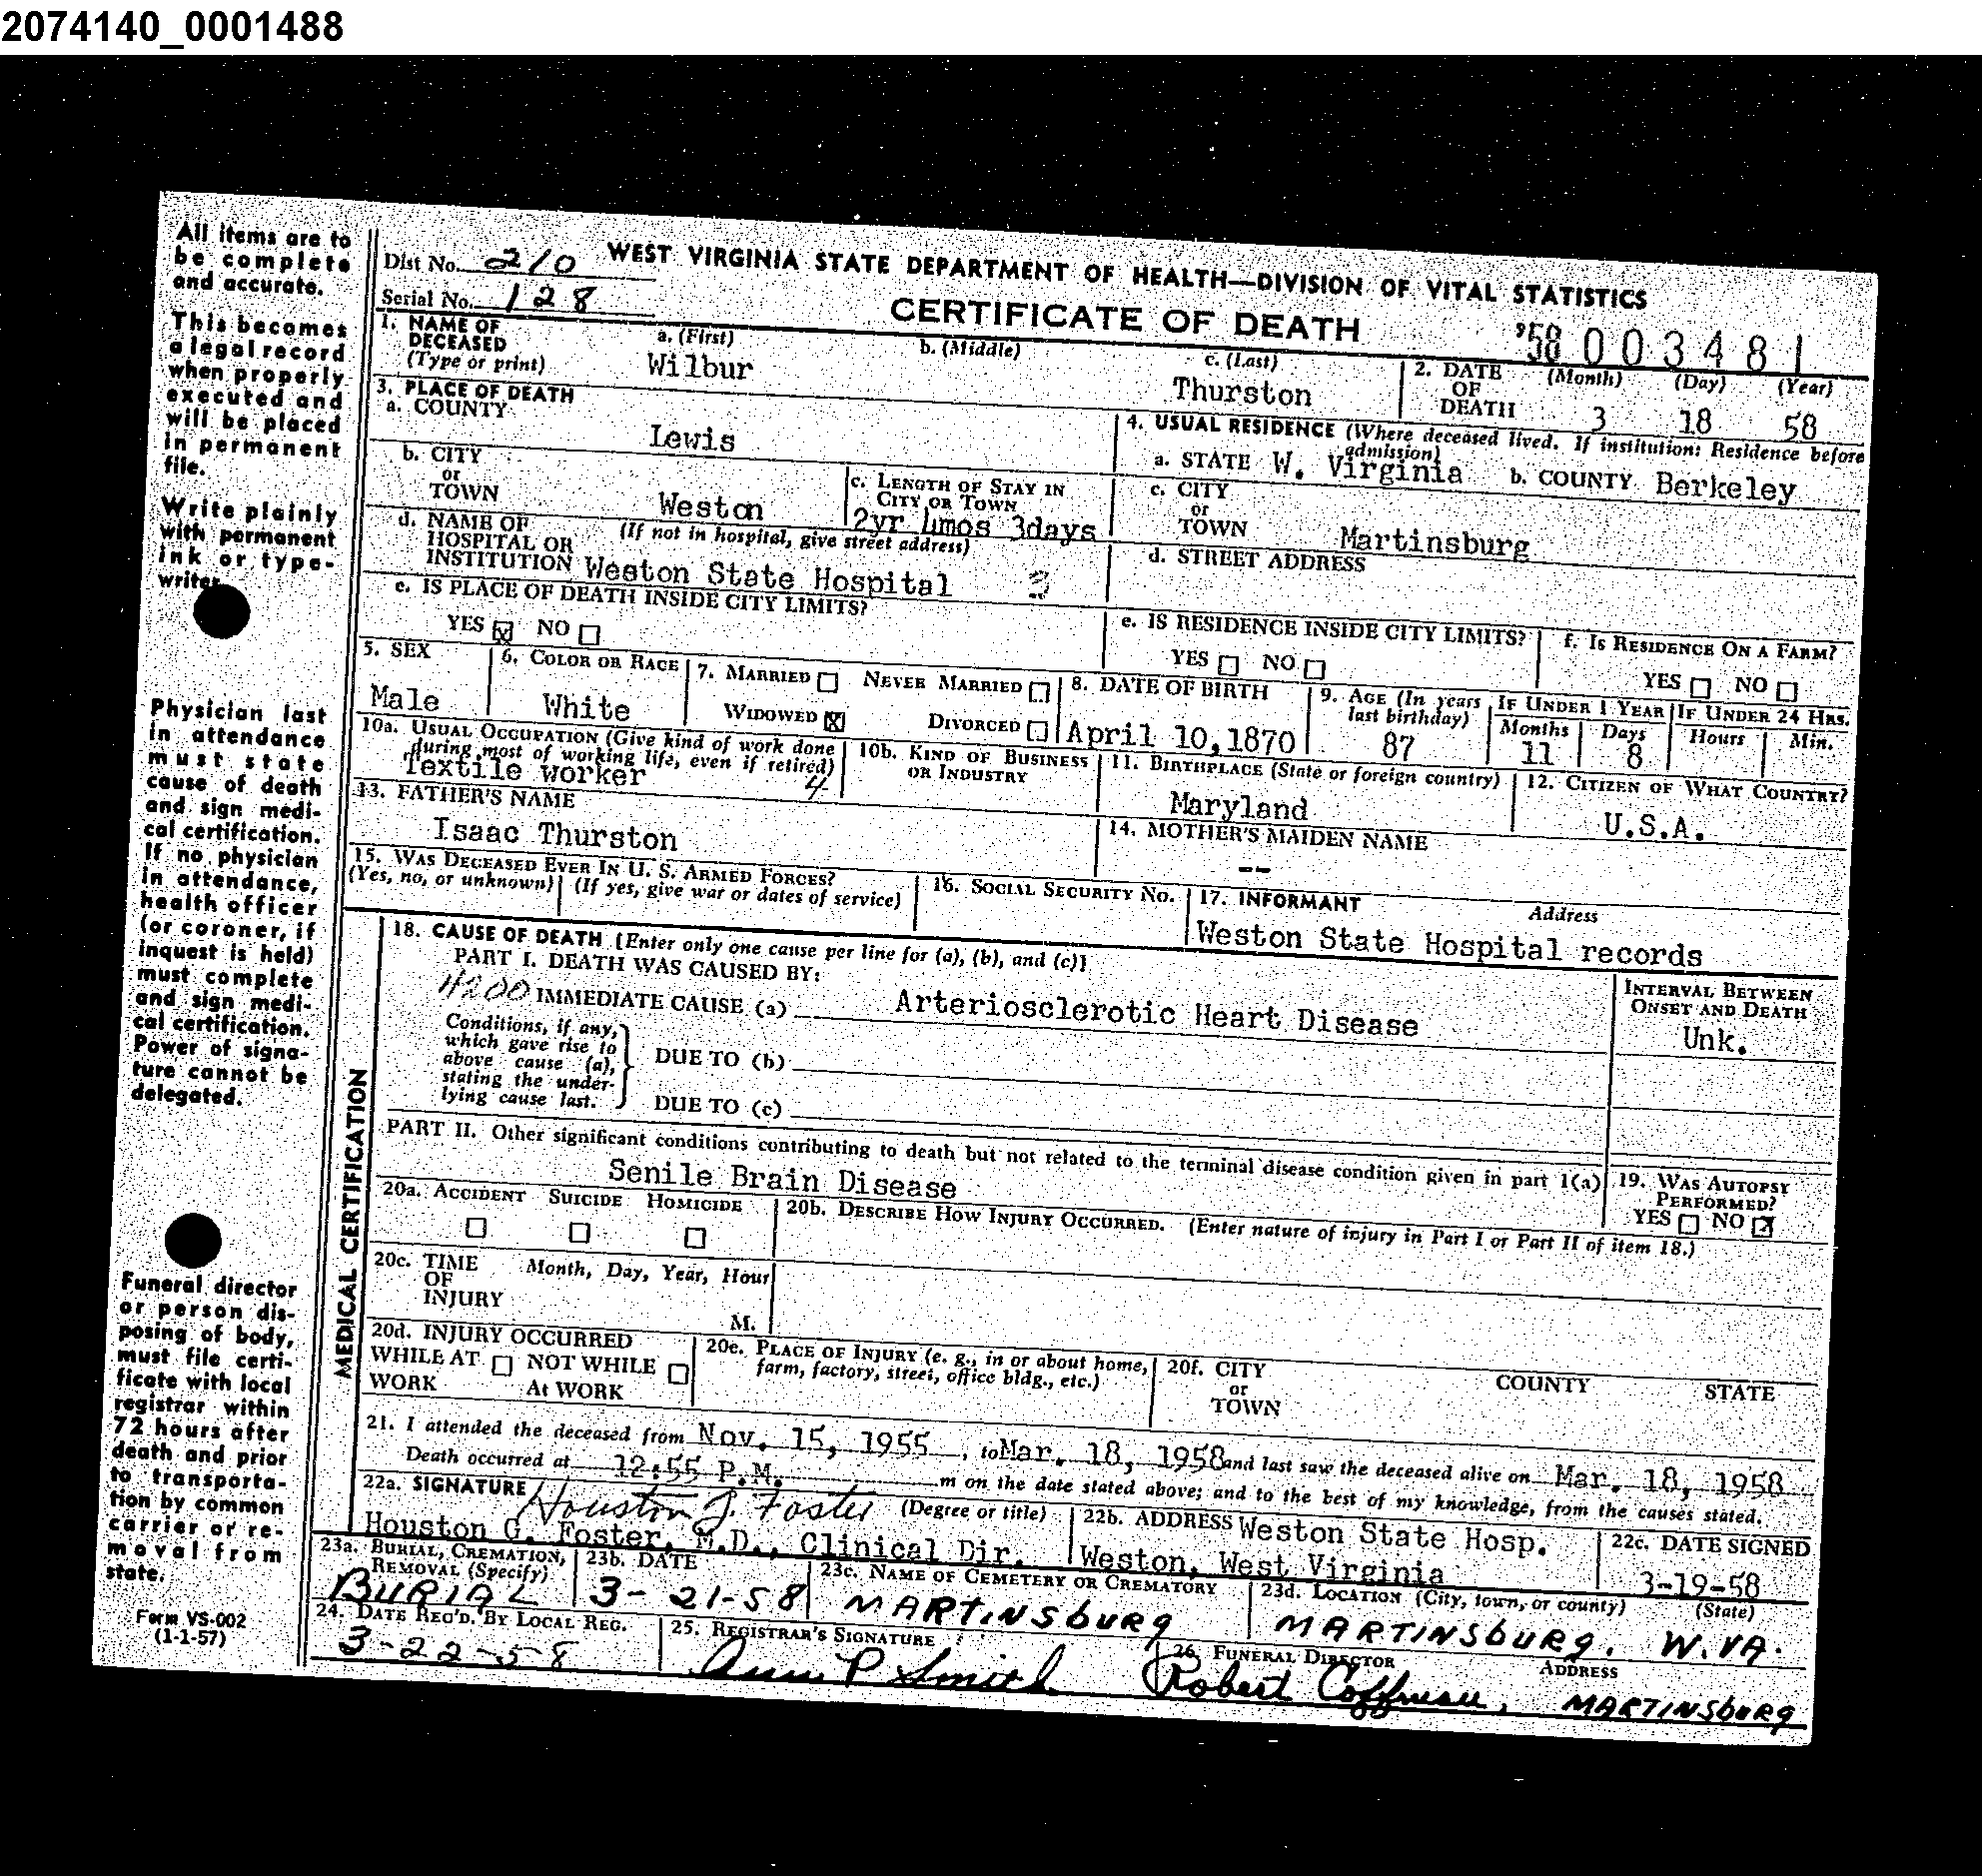 2074140_0001488
All items are to
be complete
and accurate.
This becomes
a legal record
when properly
executed and
will be placed
in permanent
file.
Write plainly
with permanent
ink or type-
writer.
Physician last
in attendance
must state
cause of death
and sign medi-
cal certification.
If no physician
in attendance,
health officer
(or coroner, if
inquest is held)
must complete
and sign medi-
cal certification.
Power of signa-
ture cannot be
delegated.
Funeral director
or person dis-
posing of body,
must file certi-
ficate with local
registrar within
72 hours after
death and prior
to transporta-
tion by common
carrier or re-
moval from
state.
Form VS-002
(1-1-57)
Dist No. 210 WEST VIRGINIA STATE DEPARTMENT OF HEALTH—DIVISION OF VITAL STATISTICS
Serial No. 128 CERTIFICATE OF DEATH '58 003481
1. NAME OF DECEASED (Type or print) a. (First) Wilbur b. (Middle) c. (Last) Thurston
2. DATE OF DEATH (Month) 3 (Day) 18 (Year) 58
3. PLACE OF DEATH
a. COUNTY Lewis
4. USUAL RESIDENCE (Where deceased lived. If institution: Residence before admission)
a. STATE W. Virginia b. COUNTY Berkeley
b. CITY or TOWN Weston
c. LENGTH OF STAY IN CITY OR TOWN 2yr 4mos 3days
c. CITY or TOWN Martinsburg
d. NAME OF HOSPITAL OR INSTITUTION (If not in hospital, give street address) Weston State Hospital
d. STREET ADDRESS
e. IS PLACE OF DEATH INSIDE CITY LIMITS?
YES ☒ NO ☐
e. IS RESIDENCE INSIDE CITY LIMITS?
YES ☐ NO ☐
f. IS RESIDENCE ON A FARM?
YES ☐ NO ☐
5. SEX Male
6. COLOR OR RACE White
7. MARRIED ☐ NEVER MARRIED ☐
WIDOWED ☒ DIVORCED ☐
8. DATE OF BIRTH April 10, 1870
9. AGE (In years last birthday) 87
IF UNDER 1 YEAR Months 11 Days 8
IF UNDER 24 HRS. Hours Min.
10a. USUAL OCCUPATION (Give kind of work done during most of working life, even if retired) Textile worker 4
10b. KIND OF BUSINESS OR INDUSTRY
11. BIRTHPLACE (State or foreign country) Maryland
12. CITIZEN OF WHAT COUNTRY? U.S.A.
13. FATHER'S NAME Isaac Thurston
14. MOTHER'S MAIDEN NAME --
15. WAS DECEASED EVER IN U. S. ARMED FORCES?
(Yes, no, or unknown) (If yes, give war or dates of service)
16. SOCIAL SECURITY NO.
17. INFORMANT Address
Weston State Hospital records
MEDICAL CERTIFICATION
18. CAUSE OF DEATH [Enter only one cause per line for (a), (b), and (c)]
PART I. DEATH WAS CAUSED BY:
4200 IMMEDIATE CAUSE (a) Arteriosclerotic Heart Disease
INTERVAL BETWEEN ONSET AND DEATH Unk.
Conditions, if any, which gave rise to above cause (a), stating the under-lying cause last.
DUE TO (b)
DUE TO (c)
PART II. Other significant conditions contributing to death but not related to the terminal disease condition given in part 1(a)
Senile Brain Disease
19. WAS AUTOPSY PERFORMED?
YES ☐ NO ☒
20a. ACCIDENT ☐ SUICIDE ☐ HOMICIDE ☐
20b. DESCRIBE HOW INJURY OCCURRED. (Enter nature of injury in Part I or Part II of item 18.)
20c. TIME OF INJURY Month, Day, Year, Hour
M.
20d. INJURY OCCURRED
WHILE AT WORK ☐ NOT WHILE At WORK ☐
20e. PLACE OF INJURY (e. g., in or about home, farm, factory, street, office bldg., etc.)
20f. CITY or TOWN COUNTY STATE
21. I attended the deceased from Nov. 15, 1955, to Mar. 18, 1958 and last saw the deceased alive on Mar. 18, 1958
Death occurred at 12:55 P.M. m on the date stated above; and to the best of my knowledge, from the causes stated.
22a. SIGNATURE Houston G. Foster (Degree or title)
Houston G. Foster, M.D., Clinical Dir.
22b. ADDRESS Weston State Hosp.
Weston, West Virginia
22c. DATE SIGNED 3-19-58
23a. BURIAL, CREMATION, REMOVAL (Specify) BURIAL
23b. DATE 3-21-58
23c. NAME OF CEMETERY OR CREMATORY MARTINSBURG
23d. LOCATION (City, town, or county) (State) MARTINSBURG. W.VA.
24. DATE REC'D. BY LOCAL REG. 3-22-58
25. REGISTRAR'S SIGNATURE Ann P Smith
26. FUNERAL DIRECTOR ADDRESS
Robert Coffman, MARTINSBURG